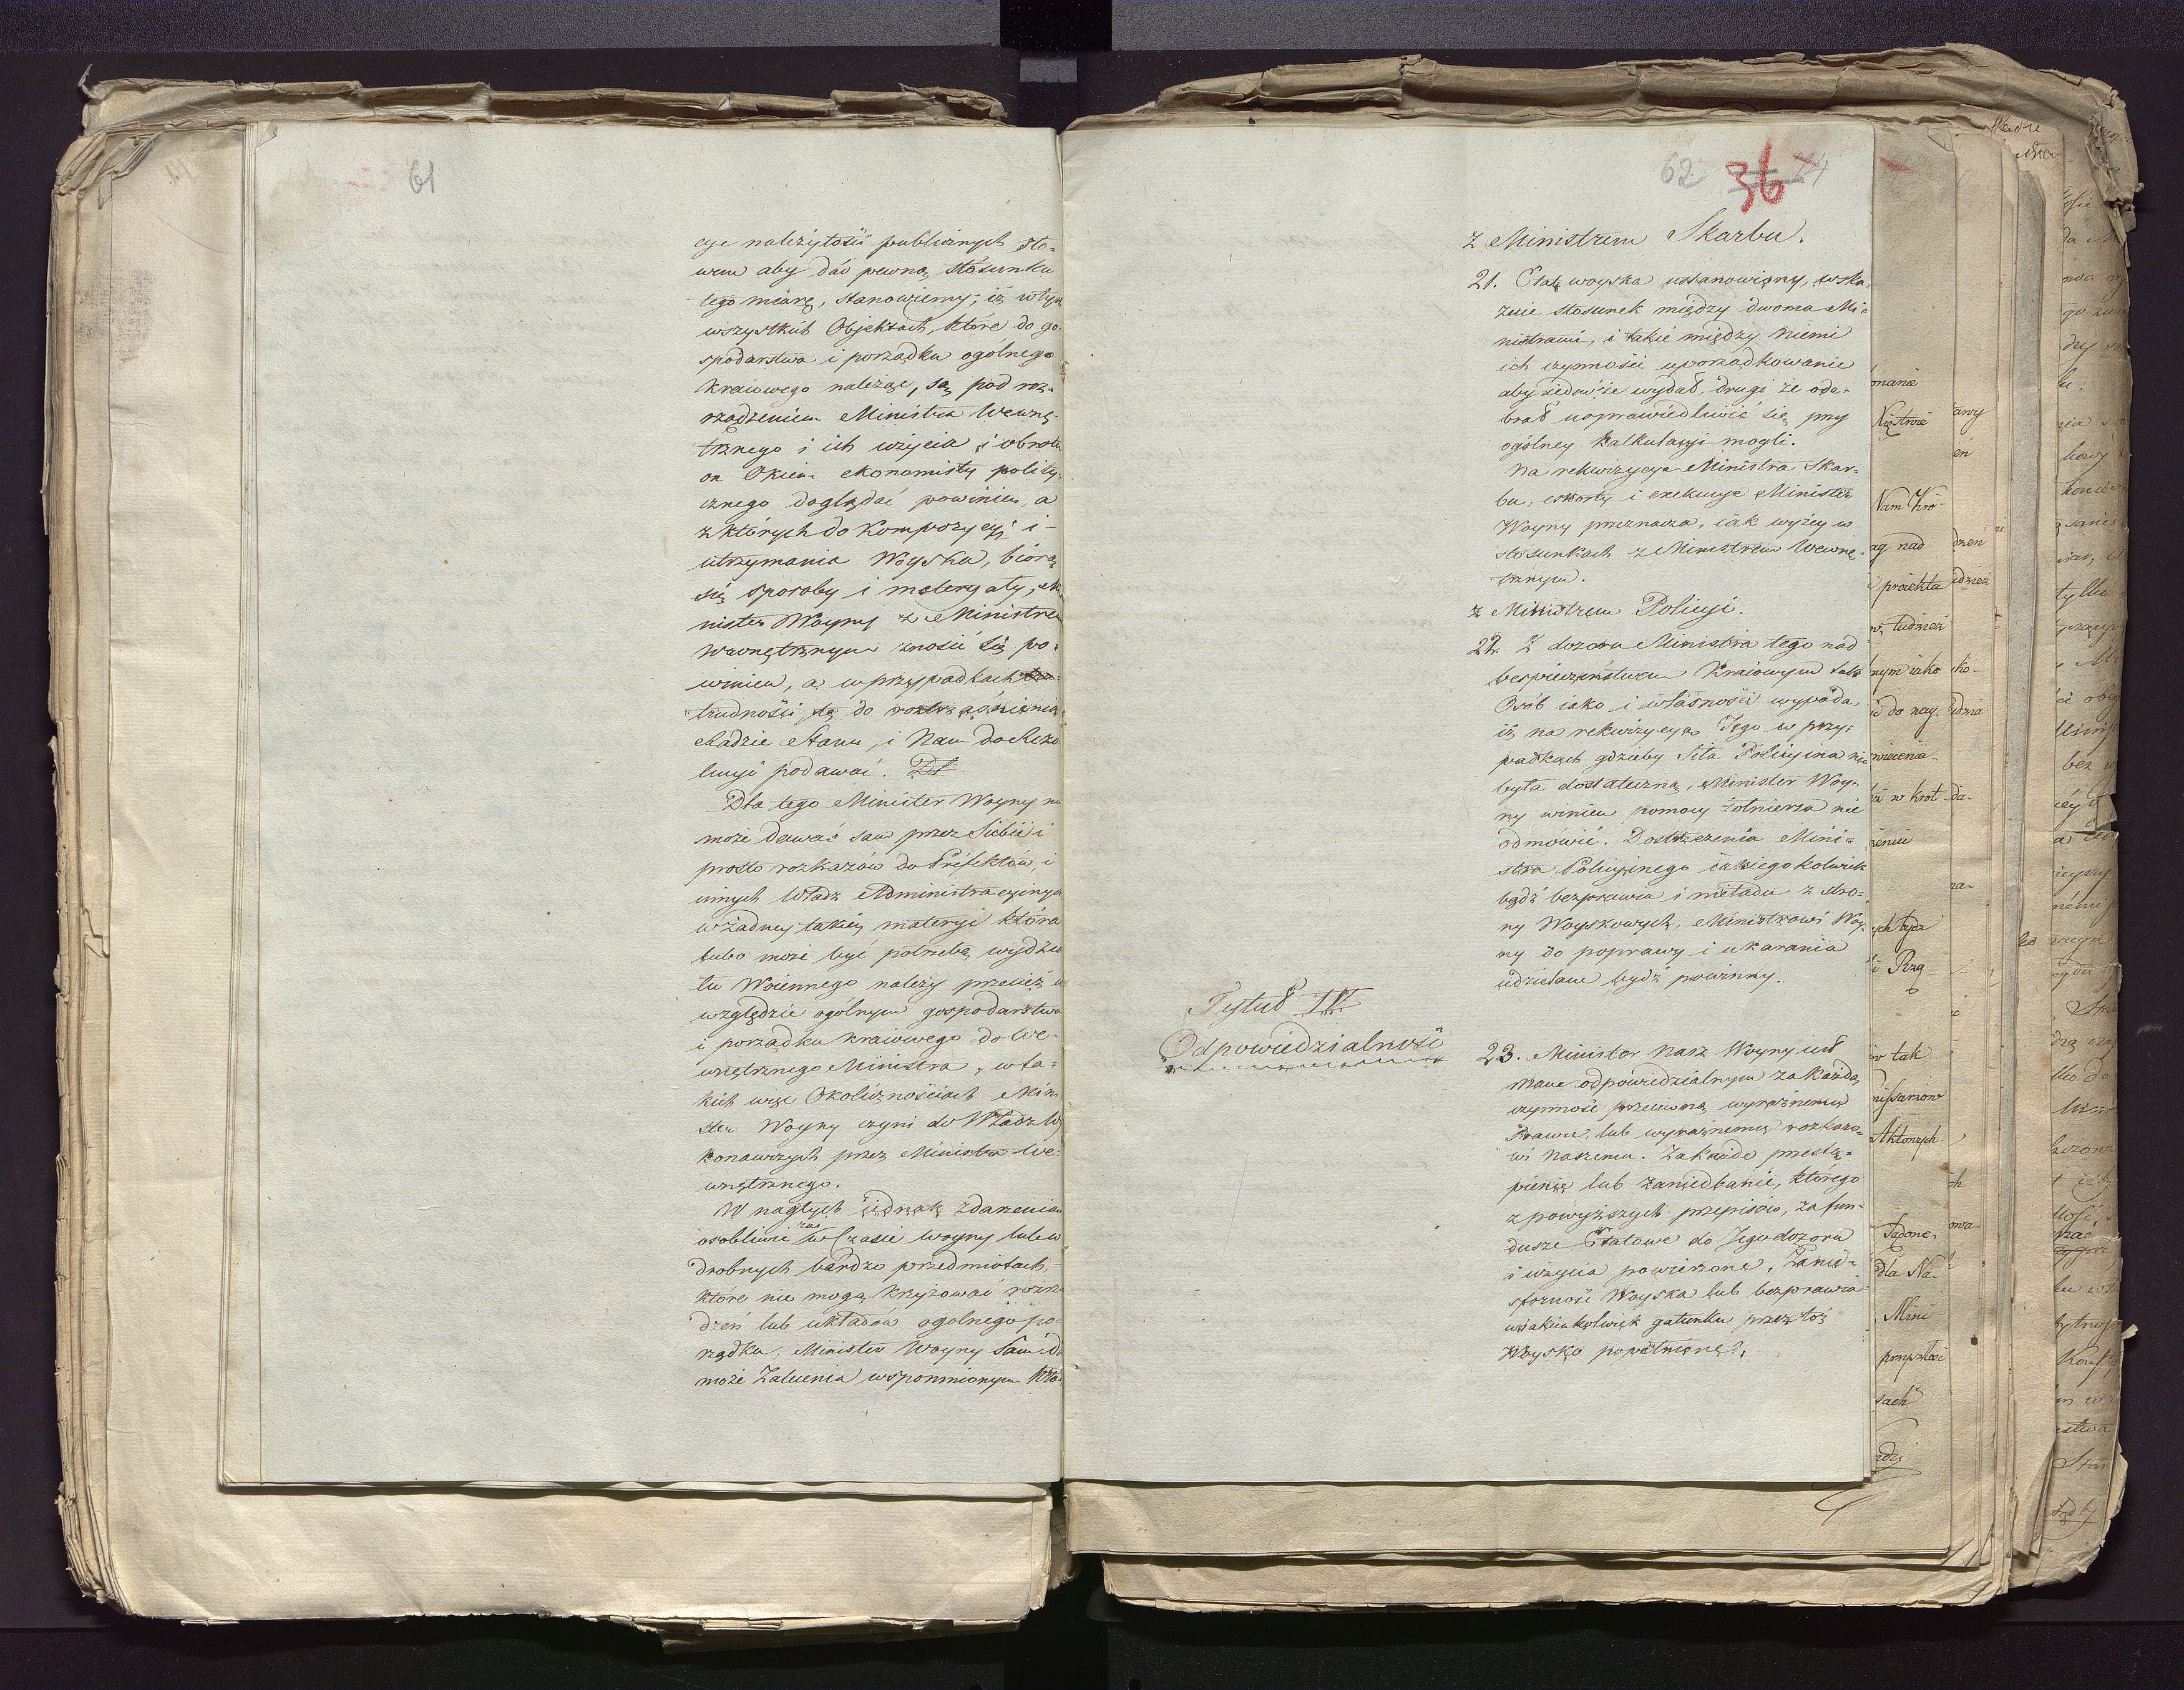 61
cye należytości publicznych sło-
wem aby dać pewną stosunku
tego miarę, stanowiemy, iż w tych
wszystkich Objektach, które do go-
spodarstwa i porządku ogólnego
kraiowego należąc, są pod roz-
rządzeniem Ministra Wewnę-
trznego i ich użycia i obrotu
on Okiem ekonomisty polity-
cznego doglądać powinien, a
z których do kompozycyi i
utrzymania Woyska, biorą
się sposoby i materyały, Mi
nister Woyny z Ministrem
wewnętrznym znosić się po-
winien, a w przypadkach
trudności, tę do roztrząśnienia
Radzie Stanu, i Nam do Rezo
lucyi podawać.
Dla tego Minister Woyny nie
może dawać sam przez Siebie i
prosto rozkazów do Prefektów, i
innych Władz Administracyinych
w żadney takiey materyi która
lubo może być potrzebą wydzia
łu Woiennego należy przecież w
względzie ogólnym gospodarstwa
i porządku kraiowego do We-
wnętrznego Ministra, w ta-
kich więc Okolicznościach Mini
ster Woyny czyni do Władz Wy
konawczych przez Ministra We-
wnętrznego.
W nagłych iednak zdarzeniach
osobliwie zaś w Czasie woyny lub w
drobnych bardzo przedmiotach,
które nie mogą krzyżować rozrzą
dzeń lub układów ogolnego po-
rządku, Minister Woyny Sam da
może Zalecenia wspomnionym Wła
62 36 24
z Ministrem Skarbu.
21. Etat woyska ustanowiony, wska-
zuie stosunek między dwoma Mi-
nistrami, i takie między niemi
ich czynności uporządkowanie
aby ieden że wydał, drugi że ode-
brał usprawiedliwić się przy
ogólney kalkulacyi mogli.
Na rekwizycye Ministra Skar-
bu, eskorty i exekucye Minister
Woyny przeznacza, iak wyżey w
stosunkach z Ministrem Wewnę-
trznym.
z Ministrem Policyi.
22. Z dozoru Ministra tego nad
bespieczeństwem Kraiowym tak
Osób iako i własności wypada,
iż na rekwizycye Jego w przy-
padkach gdzieby Siła Policyina nie
była dostateczną, Minister Woy-
ny winien pomocy żołnierza nie
odmówić. Dostrzeżenia Mini-
stra Policyinego iakiegokolwiek
bądź bezprawia i nieładu z stro-
ny Woyskowych, Ministrowi Woy-
ny do poprawy i ukarania
udzielane bydź powinny.
Tytuł IV
Odpowiedzialność
23. Minister Nasz Woyny iest
Nam odpowiedzialnym za każdą
czynność przeciwną wyraźnemu
Prawu, lub wyraźnemu rozkazo-
wi Naszemu. Za każde przestą-
pienie lub zaniedbanie, którego
z powyższych przepisów, za fun-
dusze Etatowe do Jego dozoru
i użycia powierzone. Za nie-
sforność Woyska lub bezprawia
w iakimkolwiek gatunku przez toż
Woysko popełnione.